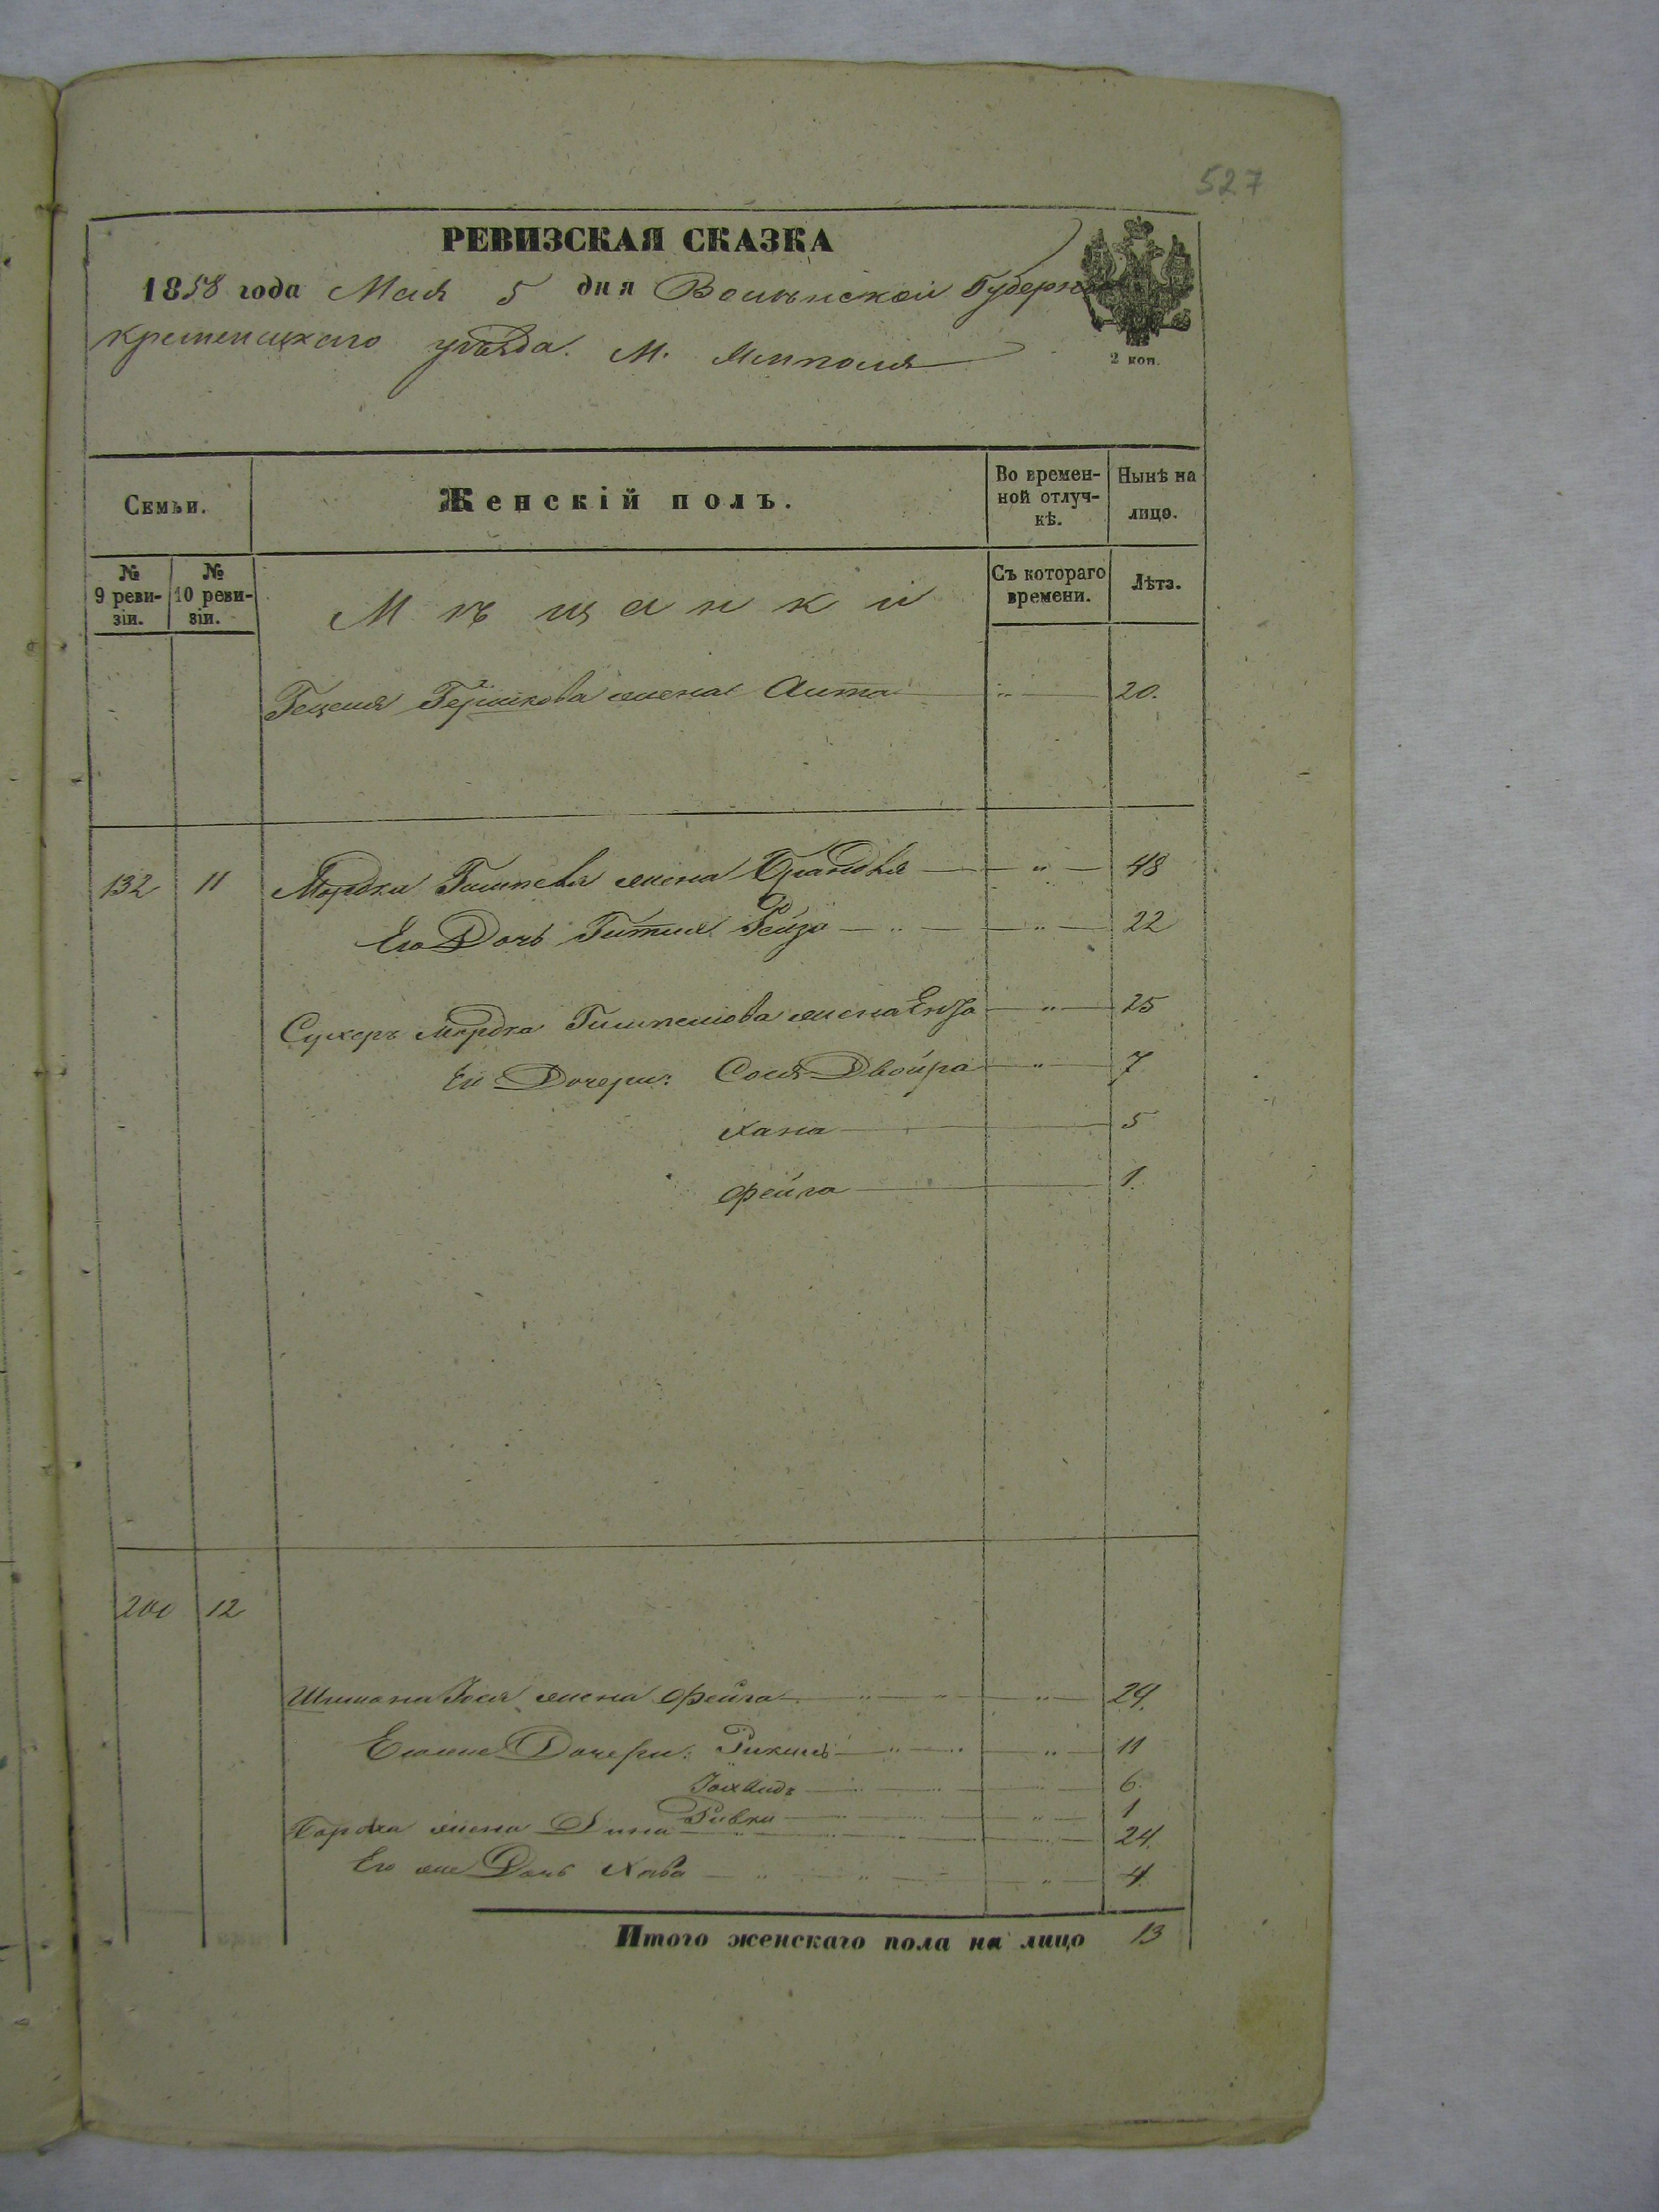 527
РЕВИЗСКАЯ СКАЗКА
1858 года Мая 5 дня Волынской Губерніи
Кременецкаго уѣзда. М. Ямполя
2 коп.
Семьи.
Женскій полъ.
Во времен-
ной отлуч-
кѣ.
Нынѣ на
лицо.
№
9 реви-
зіи.
№
10 реви-
зіи.
Мѣщанки
Съ котораго
времени.
Лѣта.
Гершкова жена 20.
132 11 Мордка жена 48
Его Дочь Гитля Рейза 22
Сухеръ Мордка жена 25
Его Дочери: Сося Двойра 7
Хана 5
Фейга 1.
12
Шимона жена Фейга 24.
Дочери: 11
6.
Ривка 1
жена Дина 24.
Его же Дочь Хава 4
Итого женскаго пола на лицо 13